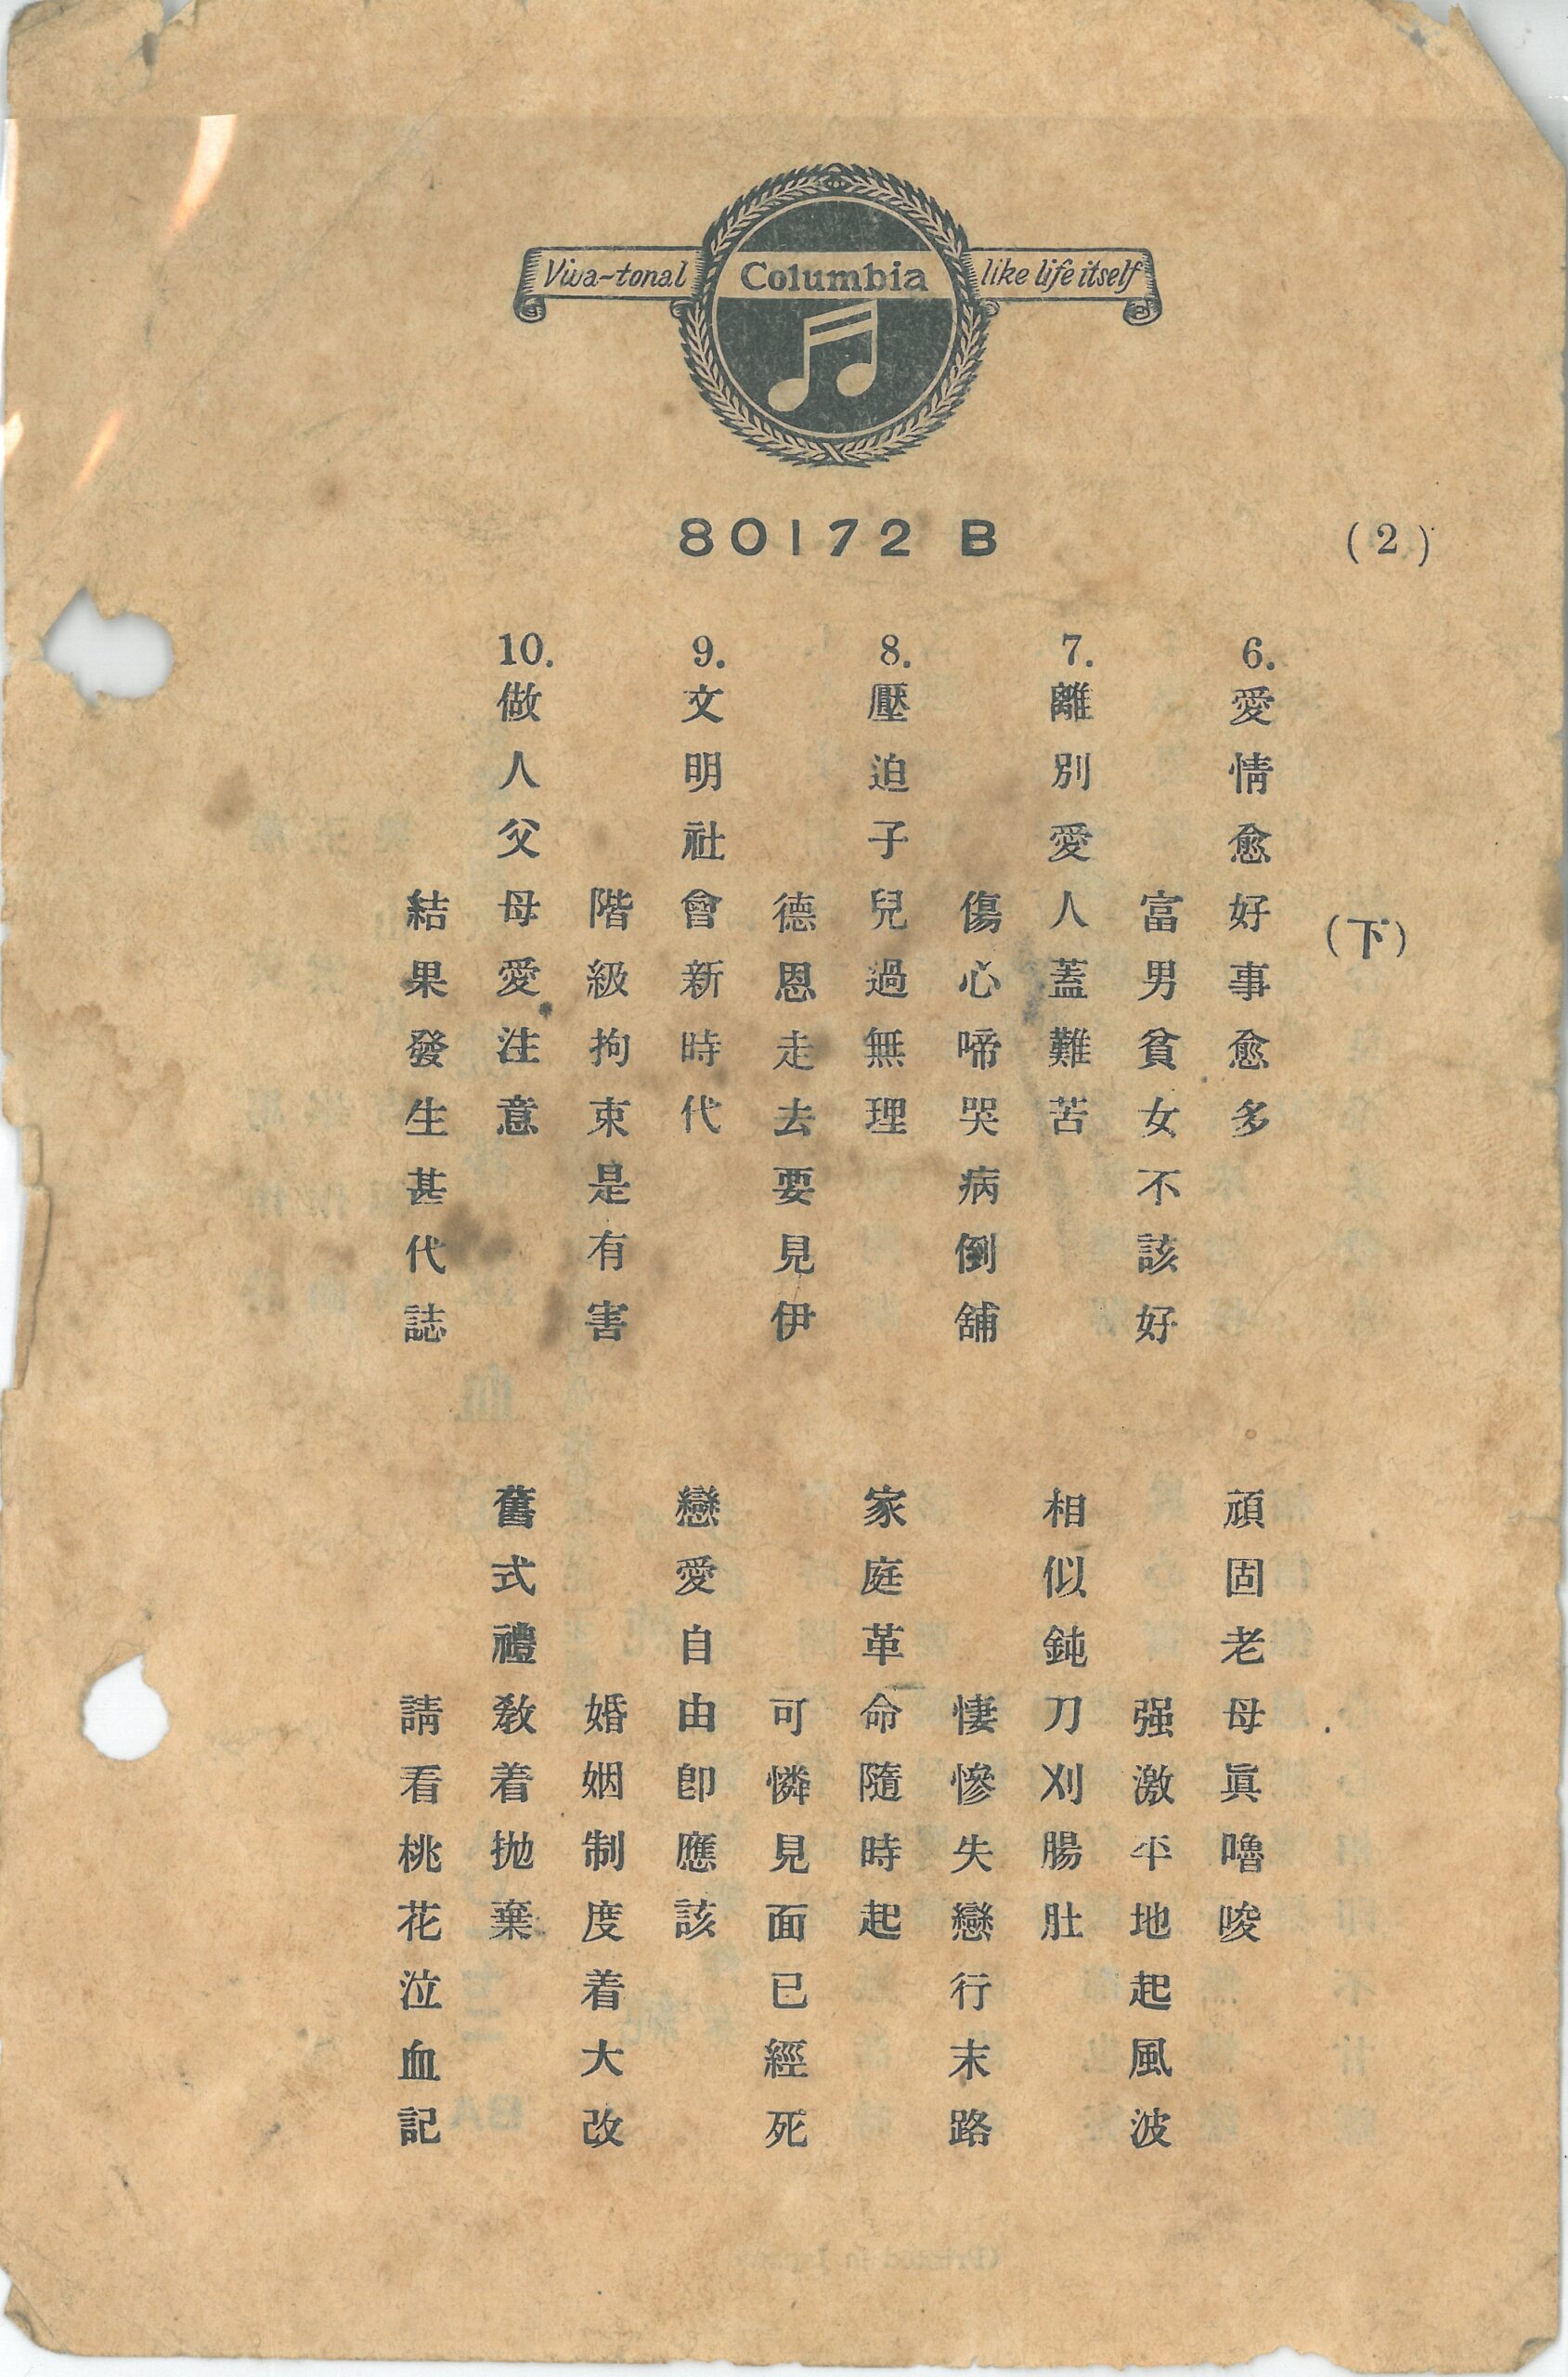 Viva-tonal Columbia like life itself
80172 B
(2)
(下)
6. 愛情愈好事愈多 頑固老母眞嚕唆
富男貧女不該好 强激平地起風波
7. 離別愛人蓋難苦 相似鈍刀刈腸肚
傷心啼哭病倒舖 悽慘失戀行末路
8. 壓迫子兒過無理 家庭革命隨時起
德恩走去要見伊 可憐見面已經死
9. 文明社會新時代 戀愛自由卽應該
階級拘束是有害 婚姻制度着大改
10. 做人父母愛注意 舊式禮敎着抛棄
結果發生甚代誌 請看桃花泣血記